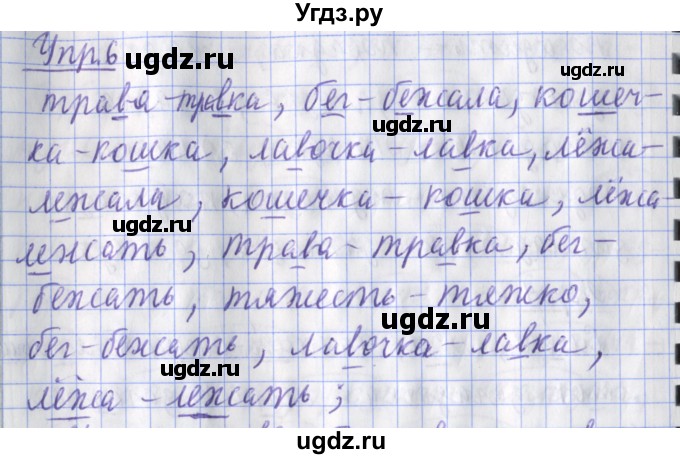 Угдз.ру
Упр.6
ugdz.ru ugdz.ru
трава-травка, бег-бежала, кошеч-
ugdz.ru
ка-кошка, лавочка-лавка, лёжа-
ugdz.ru
лежала, кошечка-кошка, лёжа-
ugdz.ru
лежать, трава-травка, бег-
бежать, тяжесть-тяжко,
ugdz.ru
бег-бежать, лавочка-лавка,
ugdz.ru
лёжа-лежать;
ugdz.ru